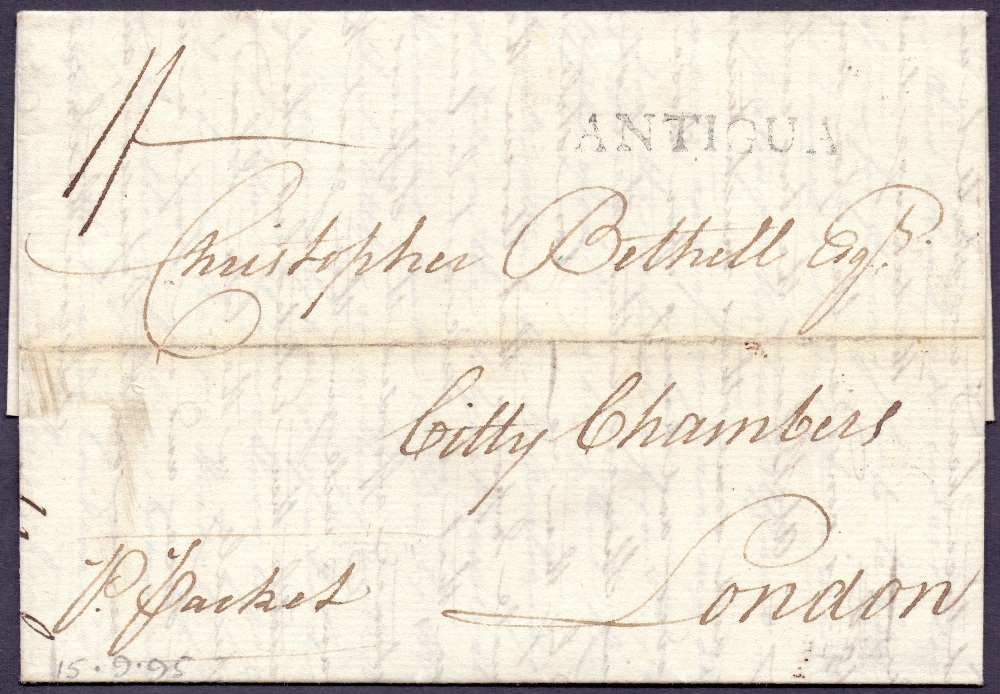 1/-
ANTIGUA
Christopher Bethell Esqr.
Citty Chambers
London
P. Packet
15.9.95